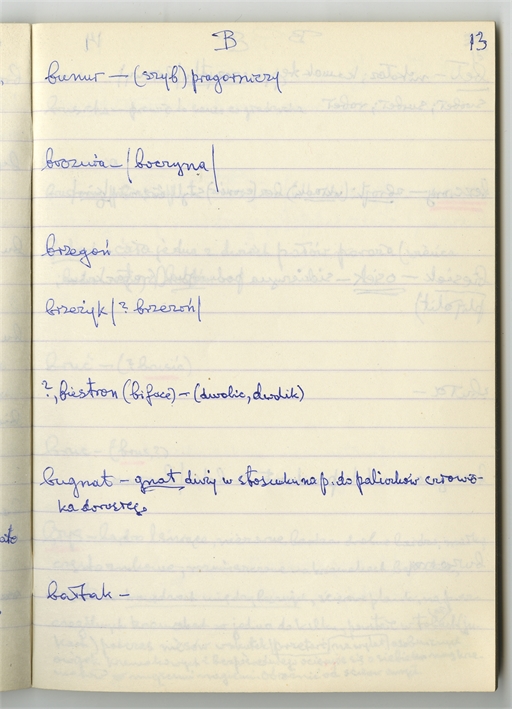 B 13
bunur — (szyb) pragórniczy
boczwia — | boczyna |
brzegoń
brzeżyk | ? brzezoń |
?, biestron (biface) — (dwolic, dwolik)
bugnat — gnat duży w stosunku na p. do paliczków człowie-
ka dorosłego
bałtak —